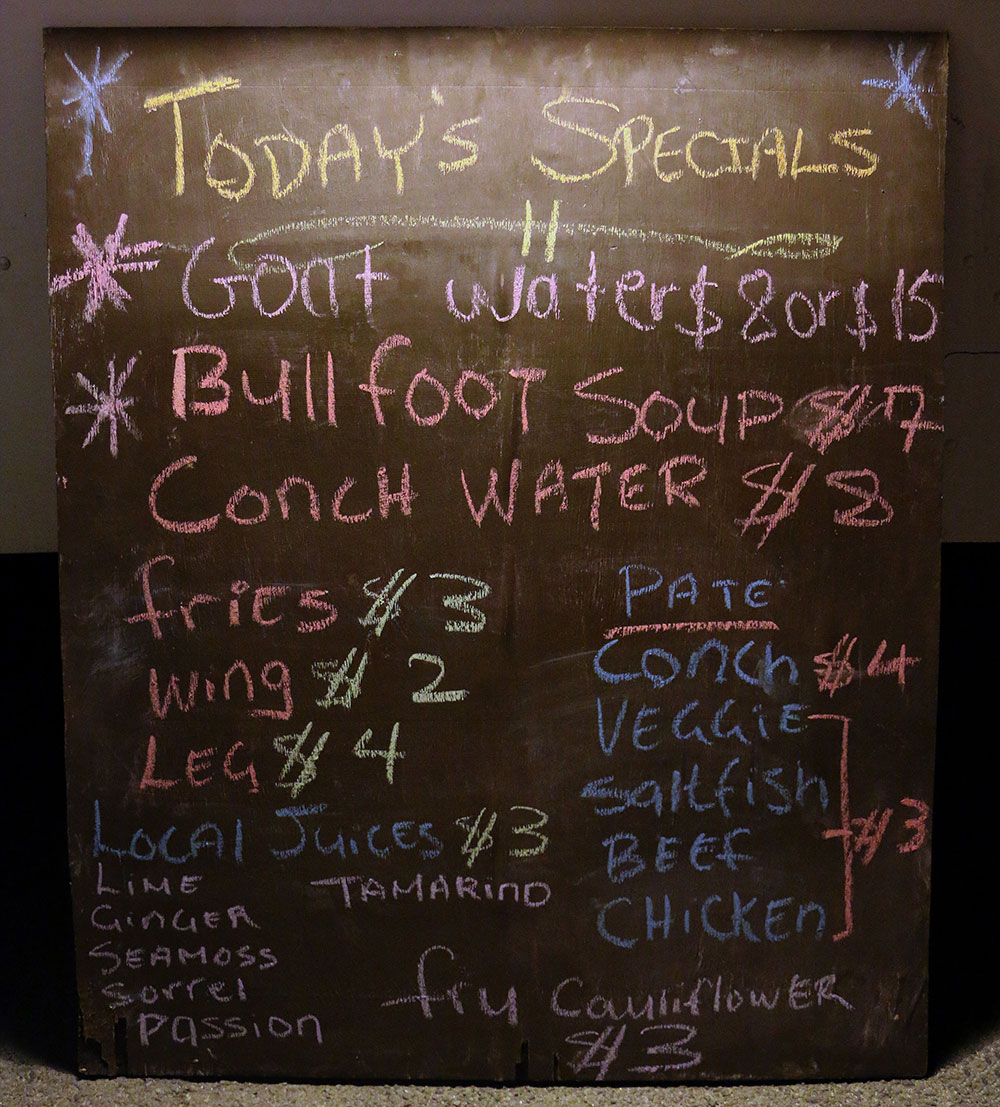 TODAY's SPECIALS
Goat water $8 or $15
Bullfoot Soup $7
Conch WATER $8
fries $3
wing $2
LEG $4
LOCAL JUICES $3
LIME TAMARIND
GINGER
SEAMOSS
Sorrel
Passion
PATE
Conch $4
VEGGIE
saltfish
BEEF $3
CHICKEN
fry CauliflowER
$3